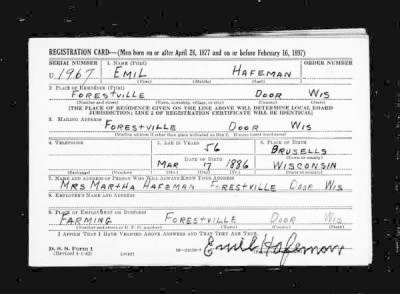 REGISTRATION CARD—(Men born on or after April 28, 1877 and on or before February 16, 1897)
SERIAL NUMBER 1. NAME (Print) ORDER NUMBER
U 1967 EMIL HAFEMAN
(First) (Middle) (Last)
2. PLACE OF RESIDENCE (Print)
FORESTVILLE DOOR WIS
(Number and street) (Town, township, village, or city) (County) (State)
[THE PLACE OF RESIDENCE GIVEN ON THE LINE ABOVE WILL DETERMINE LOCAL BOARD
JURISDICTION; LINE 2 OF REGISTRATION CERTIFICATE WILL BE IDENTICAL]
3. MAILING ADDRESS
FORESTVILLE DOOR WIS
[Mailing address if other than place indicated on line 2. If same insert word same]
4. TELEPHONE 5. AGE IN YEARS 6. PLACE OF BIRTH
56 BRUSELLS
DATE OF BIRTH (Town or county)
MAR 17 1886 WISCONSIN
(Mo.) (Day) (Yr.) (State or country)
7. NAME AND ADDRESS OF PERSON WHO WILL ALWAYS KNOW YOUR ADDRESS
MRS MARTHA HAFEMAN FORESTVILLE DOOR WIS
8. EMPLOYER'S NAME AND ADDRESS
9. PLACE OF EMPLOYMENT OR BUSINESS
FARMING FORESTVILLE DOOR WIS
(Number and street or R. F. D. number) (Town) (County) (State)
I AFFIRM THAT I HAVE VERIFIED ABOVE ANSWERS AND THAT THEY ARE TRUE.
D. S. S. Form 1
(Revised 4-1-42) Emil Hafeman